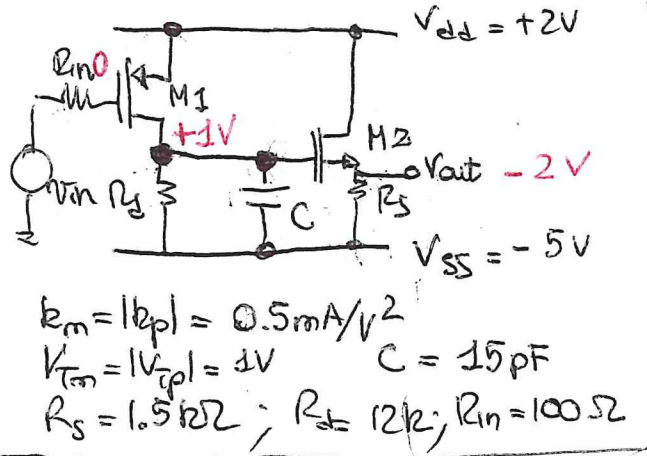 Vdd = +2V
Rin 0
M1
+1V
M2
Vin Rd
C
Vout -2V
Rs
VSS = -5V
kn = |kp| = 0.5mA/V²
VTn = |VTp| = 1V C = 15pF
Rs = 1.5kΩ ; Rd = 12k; Rin = 100Ω